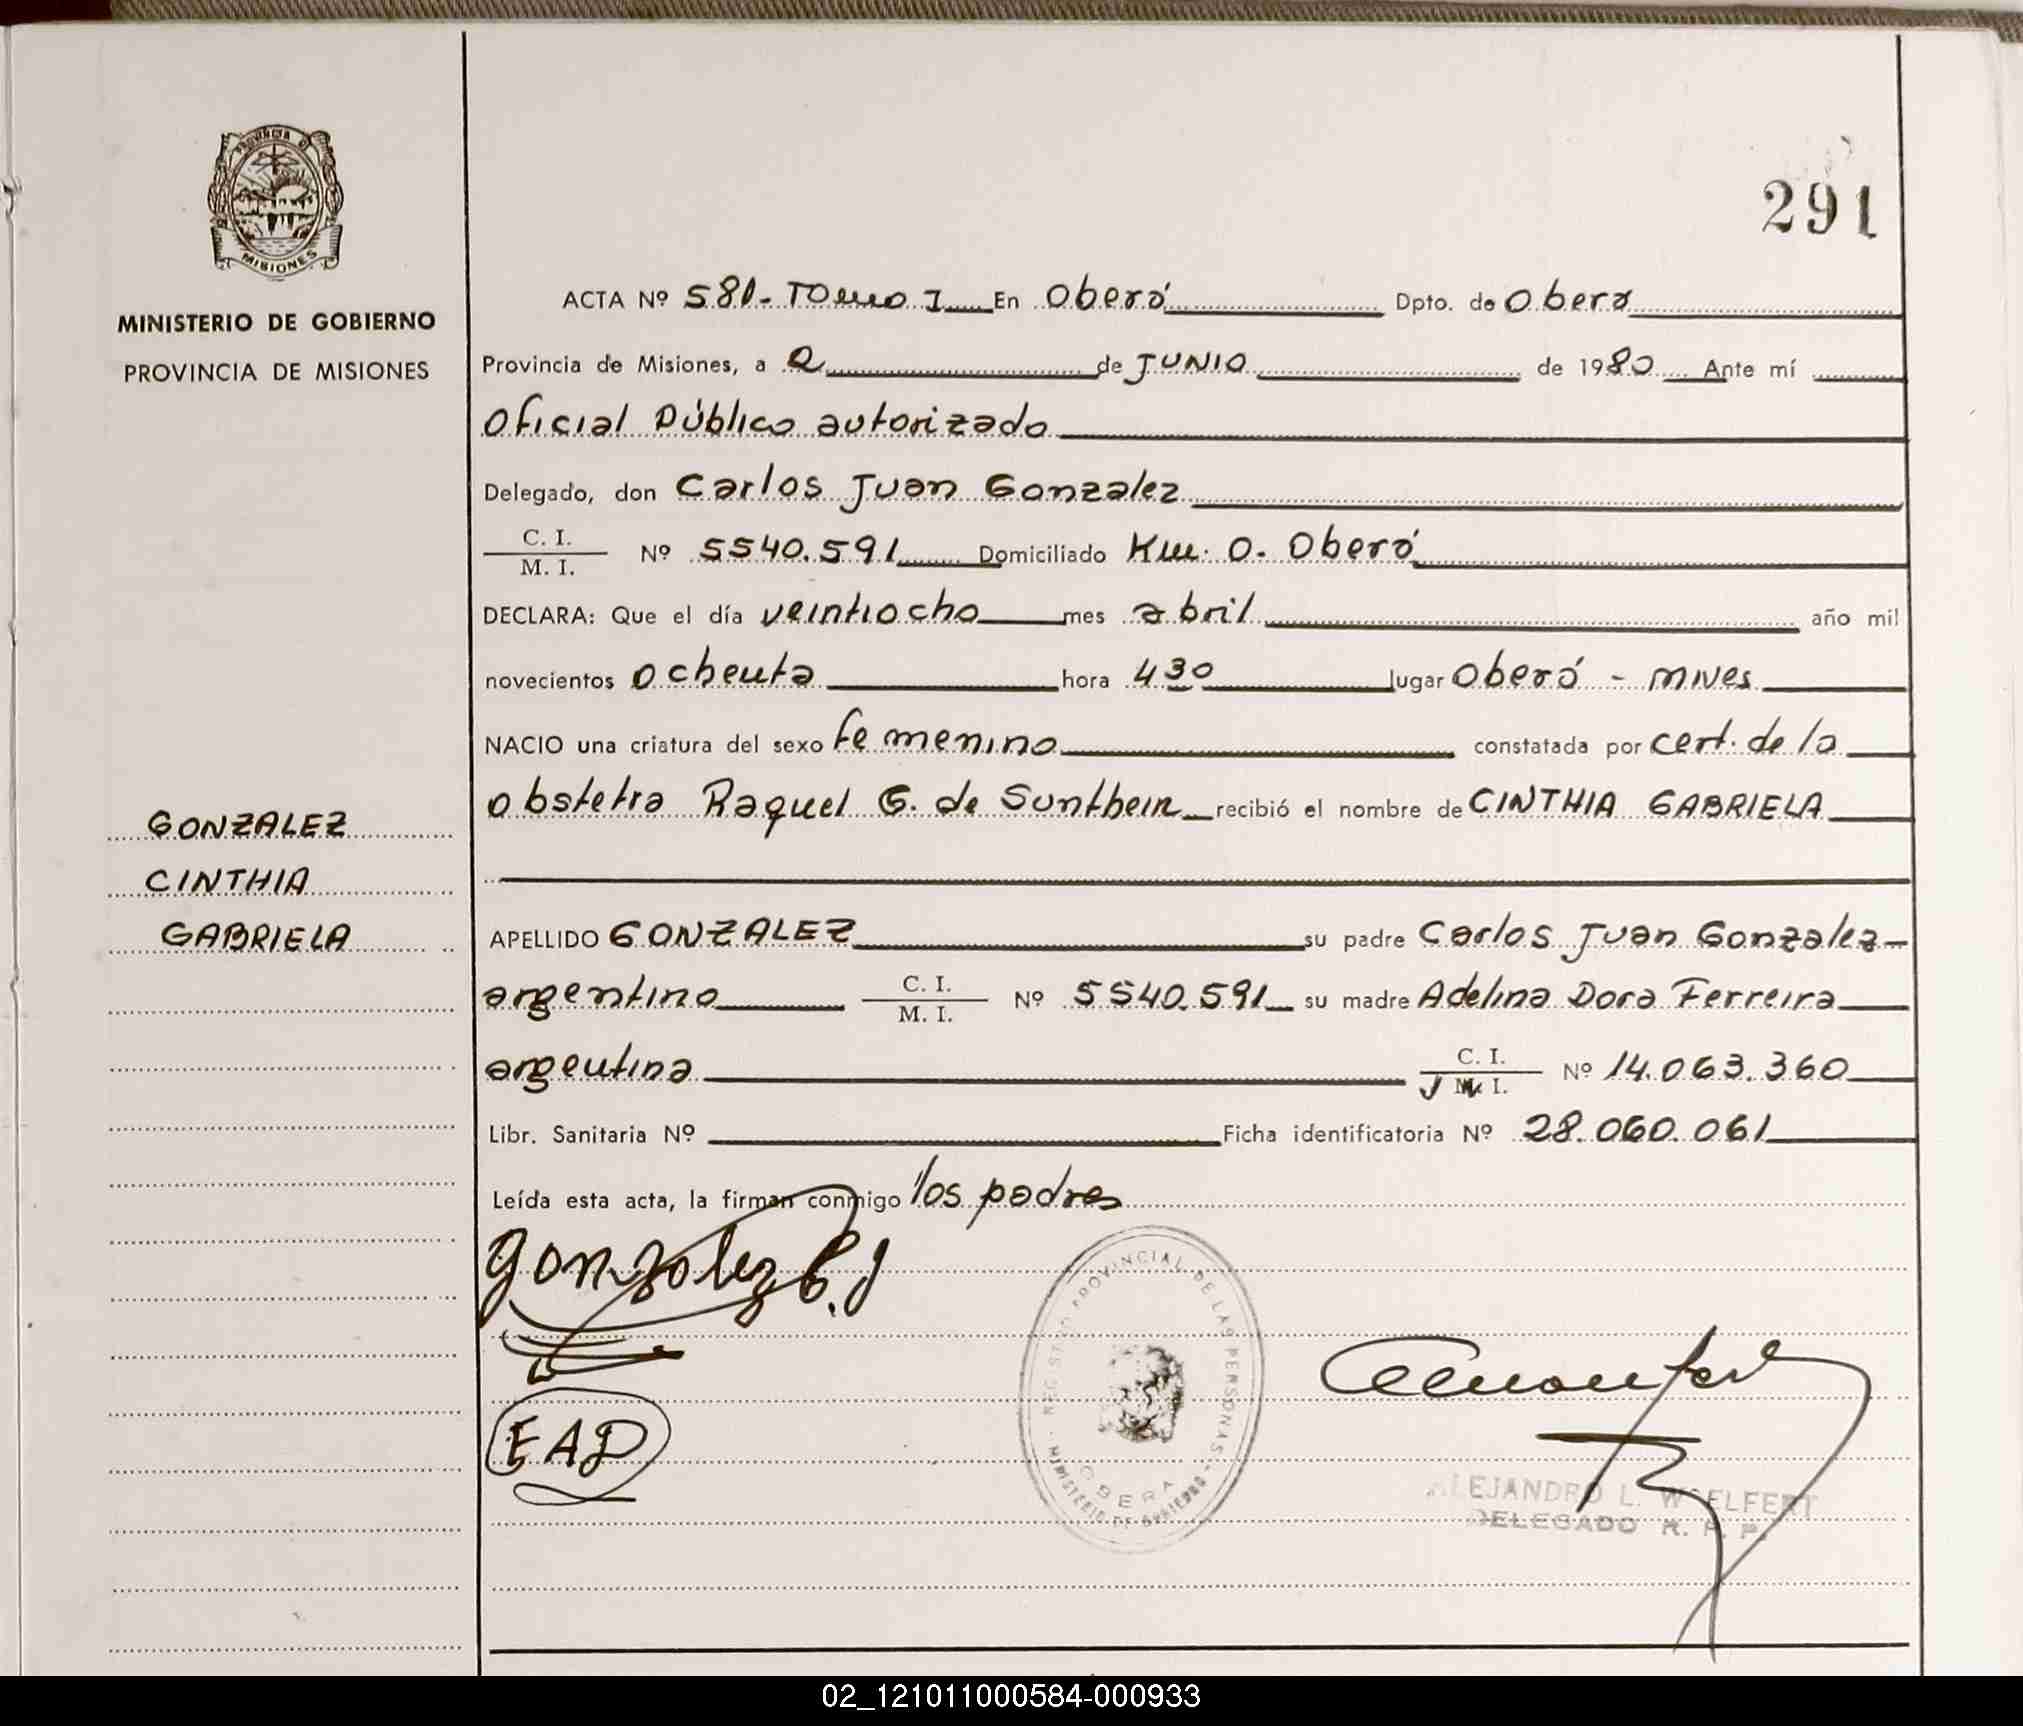 PROVINCIA D
MISIONES
MINISTERIO DE GOBIERNO
PROVINCIA DE MISIONES
GONZALEZ
CINTHIA
GABRIELA
291
ACTA Nº 581-Tomo I En Oberá Dpto. de Obera
Provincia de Misiones, a 2 de JUNIO de 1980 Ante mí
Oficial Público autorizado
Delegado, don Carlos Juan Gonzalez
C. I.
M. I. Nº 5540.591 Domiciliado Km. 0. Oberá
DECLARA: Que el día veintiocho mes abril año mil
novecientos ochenta hora 430 lugar Oberá - mives
NACIO una criatura del sexo femenino constatada por cert. de la
obstetra Raquel G. de Sunthein recibió el nombre de CINTHIA GABRIELA
APELLIDO GONZALEZ su padre Carlos Juan Gonzalez
argentino C. I.
M. I. Nº 5540.591 su madre Adelina Dora Ferreira
argentina C. I.
M. I. Nº 14.063.360
Libr. Sanitaria Nº Ficha identificatoria Nº 28.060.061
Leída esta acta, la firman conmigo los padres
Gonzalez C.J
EAD
REGISTRO PROVINCIAL DE LAS PERSONAS
MINISTERIO DE GOBIERNO
OBERA
ALEJANDRO L. WOELFERT
DELEGADO R. P. P.
02_121011000584-000933